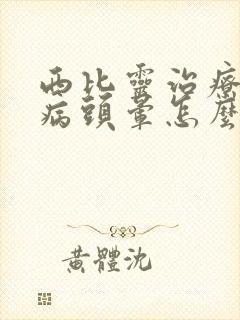 西比靈治療
病頭暈怎麼
黃體沈